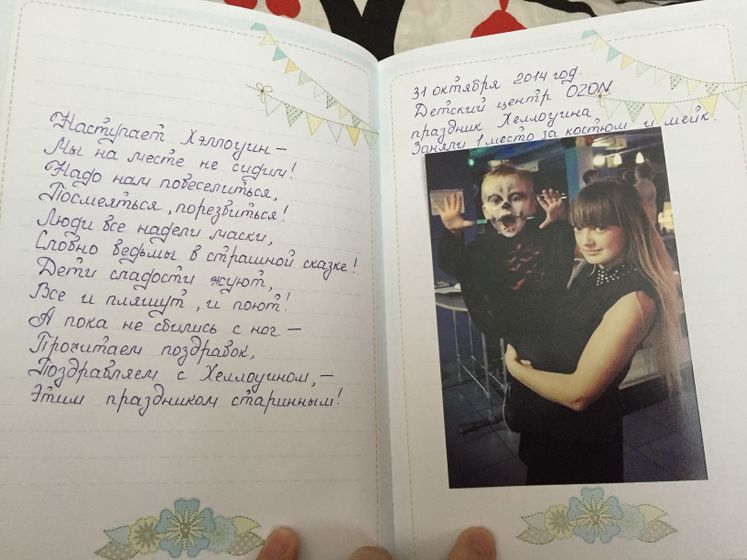 Наступает Хэллоуин –
Мы на месте не сидим!
Надо нам повеселиться,
Посмеяться, порезвиться!
Люди все надели маски,
Словно ведьмы в страшной сказке!
Дети сладости жуют,
Все и пляшут, и поют!
А пока не сбились с ног –
Прочитаем поздравок,
Поздравляем с Хеллоуином, –
Этим праздником старинным!
31 октября 2014 год.
Детский центр OZON
праздник Хеллоуина
Заняли 1 место за костюм и мейк.